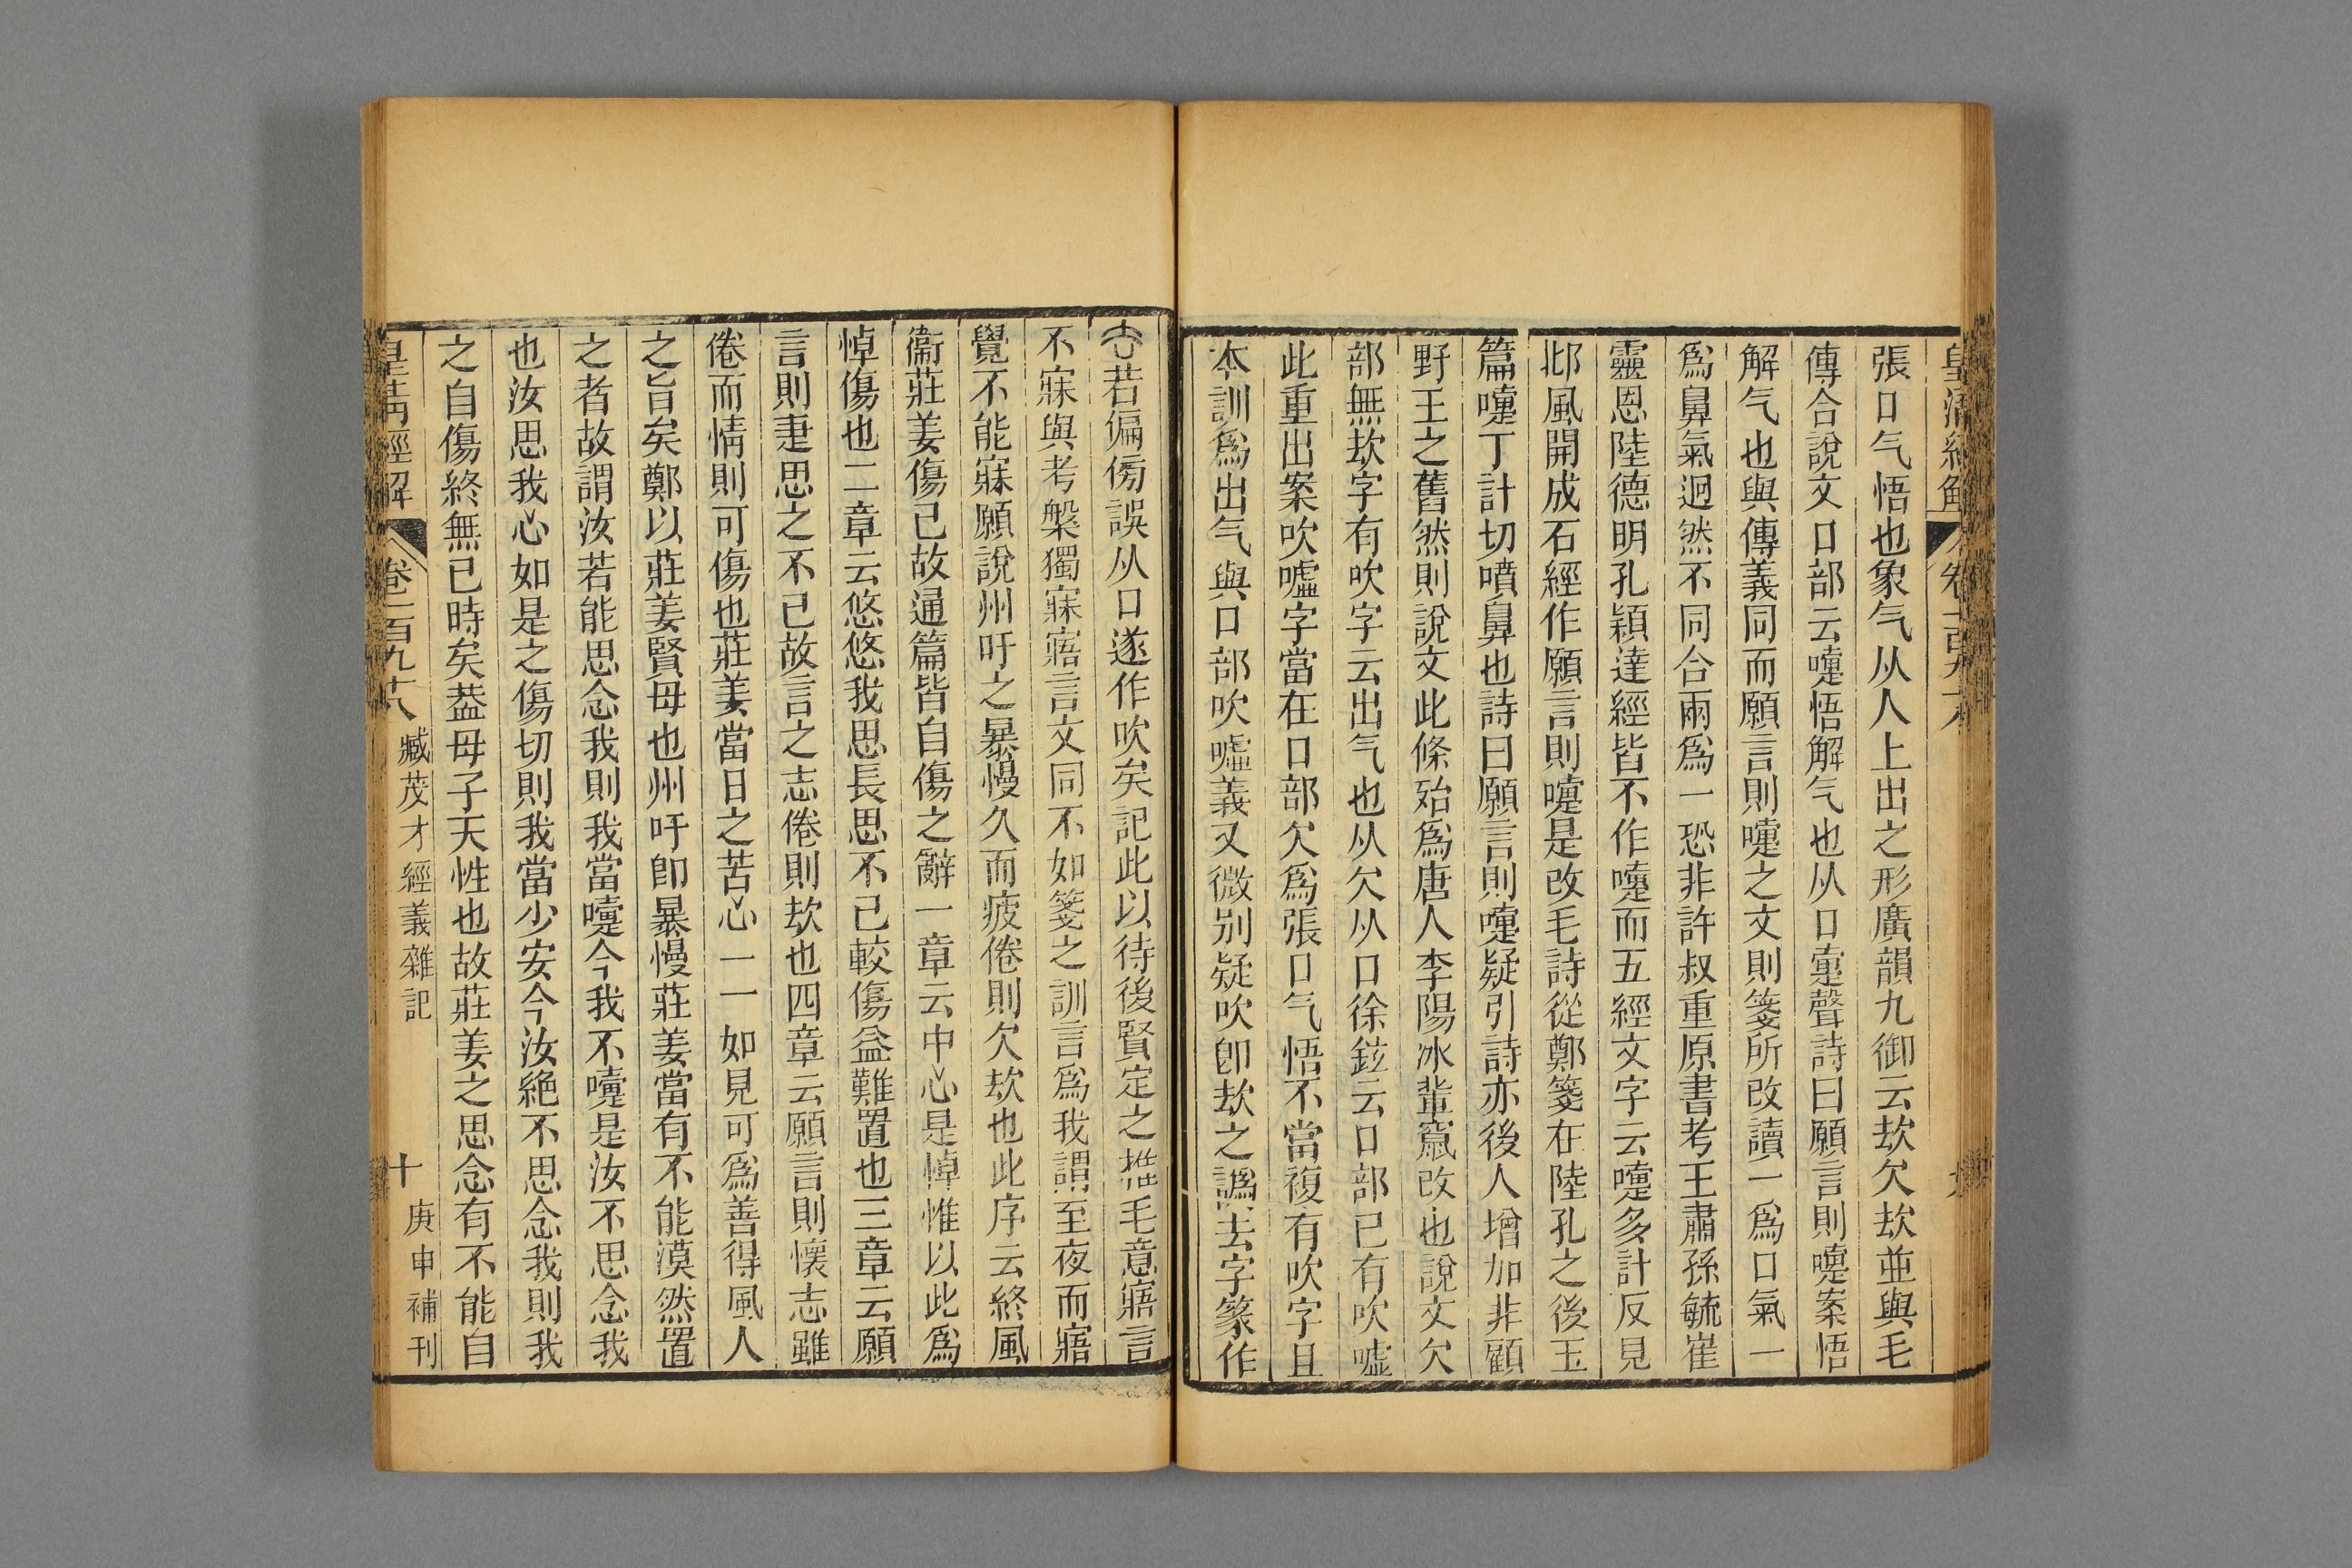 張口气悟也象气从人上出之形廣韻九御云㰦欠㰦並與毛
傳合說文口部云嚏悟解气也从口疐聲詩曰願言則嚏案悟
解气也與傳義同而願言則嚏之文則箋所改讀一爲口氣一
爲鼻氣迥然不同合兩爲一恐非許叔重原書考王肅孫毓崔
靈恩陸德明孔穎達經皆不作嚏而五經文字云嚏多計反見
邶風開成石經作願言則嚏是改毛詩從鄭箋在陸孔之後玉
篇嚏丁計切噴鼻也詩曰願言則嚏疑引詩亦後人增加非顧
野王之舊然則說文此條殆爲唐人李陽冰輩竄改也說文欠
部無㰦字有吹字云出气也从欠从口徐鉉云口部已有吹噓
此重出案吹噓字當在口部欠爲張口气悟不當複有吹字且
本訓爲出气與口部吹噓義又微别疑吹卽㰦之譌去字篆作
若偏傍誤从口遂作吹矣記此以待後賢定之推毛意寤言
不寐與考槃獨寐寤言文同不如箋之訓言爲我謂至夜而寤
覺不能寐願說州吁之暴慢久而疲倦則欠㰦也此序云終風
衞莊姜傷己故通篇皆自傷之辭一章云中心是悼惟以此爲
悼傷也二章云悠悠我思長思不已較傷益難置也三章云願
言則疌思之不已故言之志倦則㰦也四章云願言則懷志雖
倦而情則可傷也莊姜當日之苦心一一如見可爲善得風人
之旨矣鄭以莊姜賢母也州吁卽暴慢莊姜當有不能漠然置
之者故謂汝若能思念我則我當嚏今我不嚏是汝不思念我
也汝思我心如是之傷切則我當少安今汝絶不思念我則我
之自傷終無已時矣葢母子天性也故莊姜之思念有不能自
皇淸經解 卷一百九十八 臧茂才經義雜記 十 庚申補刊